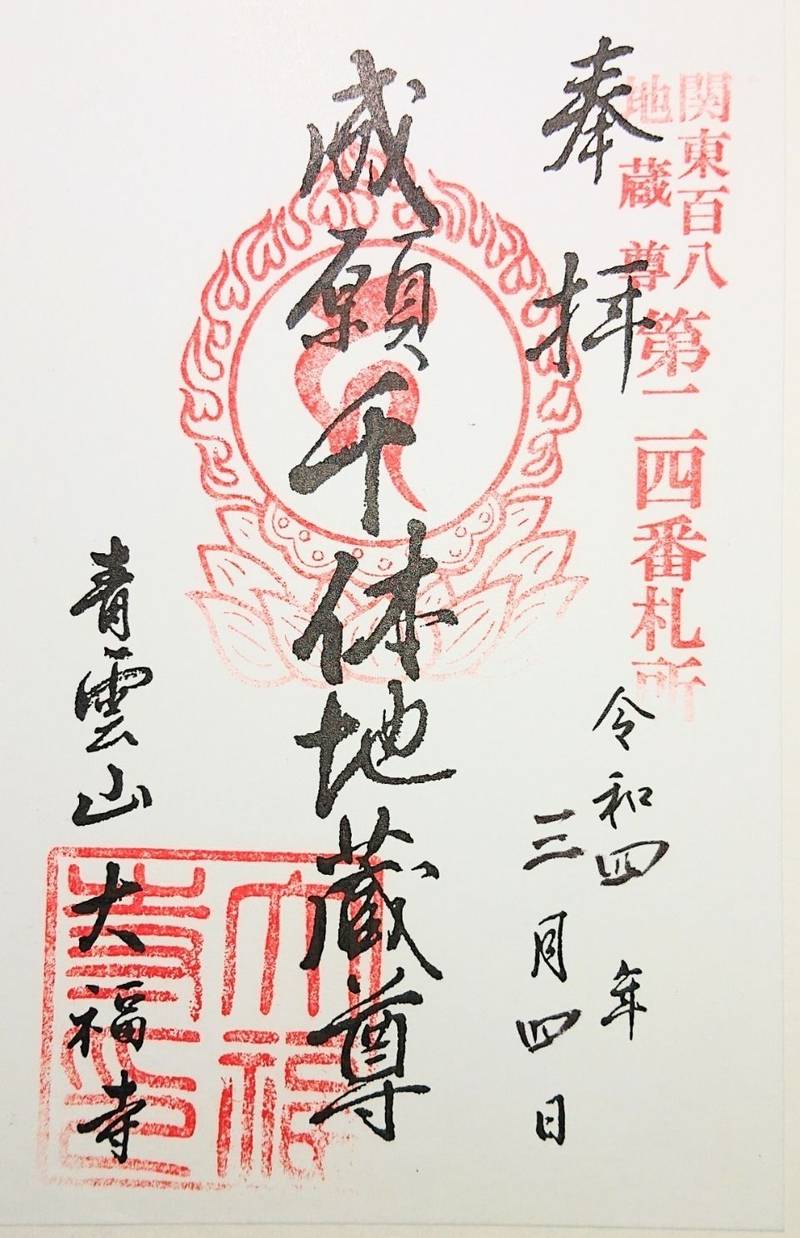 関東百八
地蔵尊
第二四番札所
奉拝
令和四年
三月四日
成願千体地蔵尊
青雲山大福寺
大福
寺印